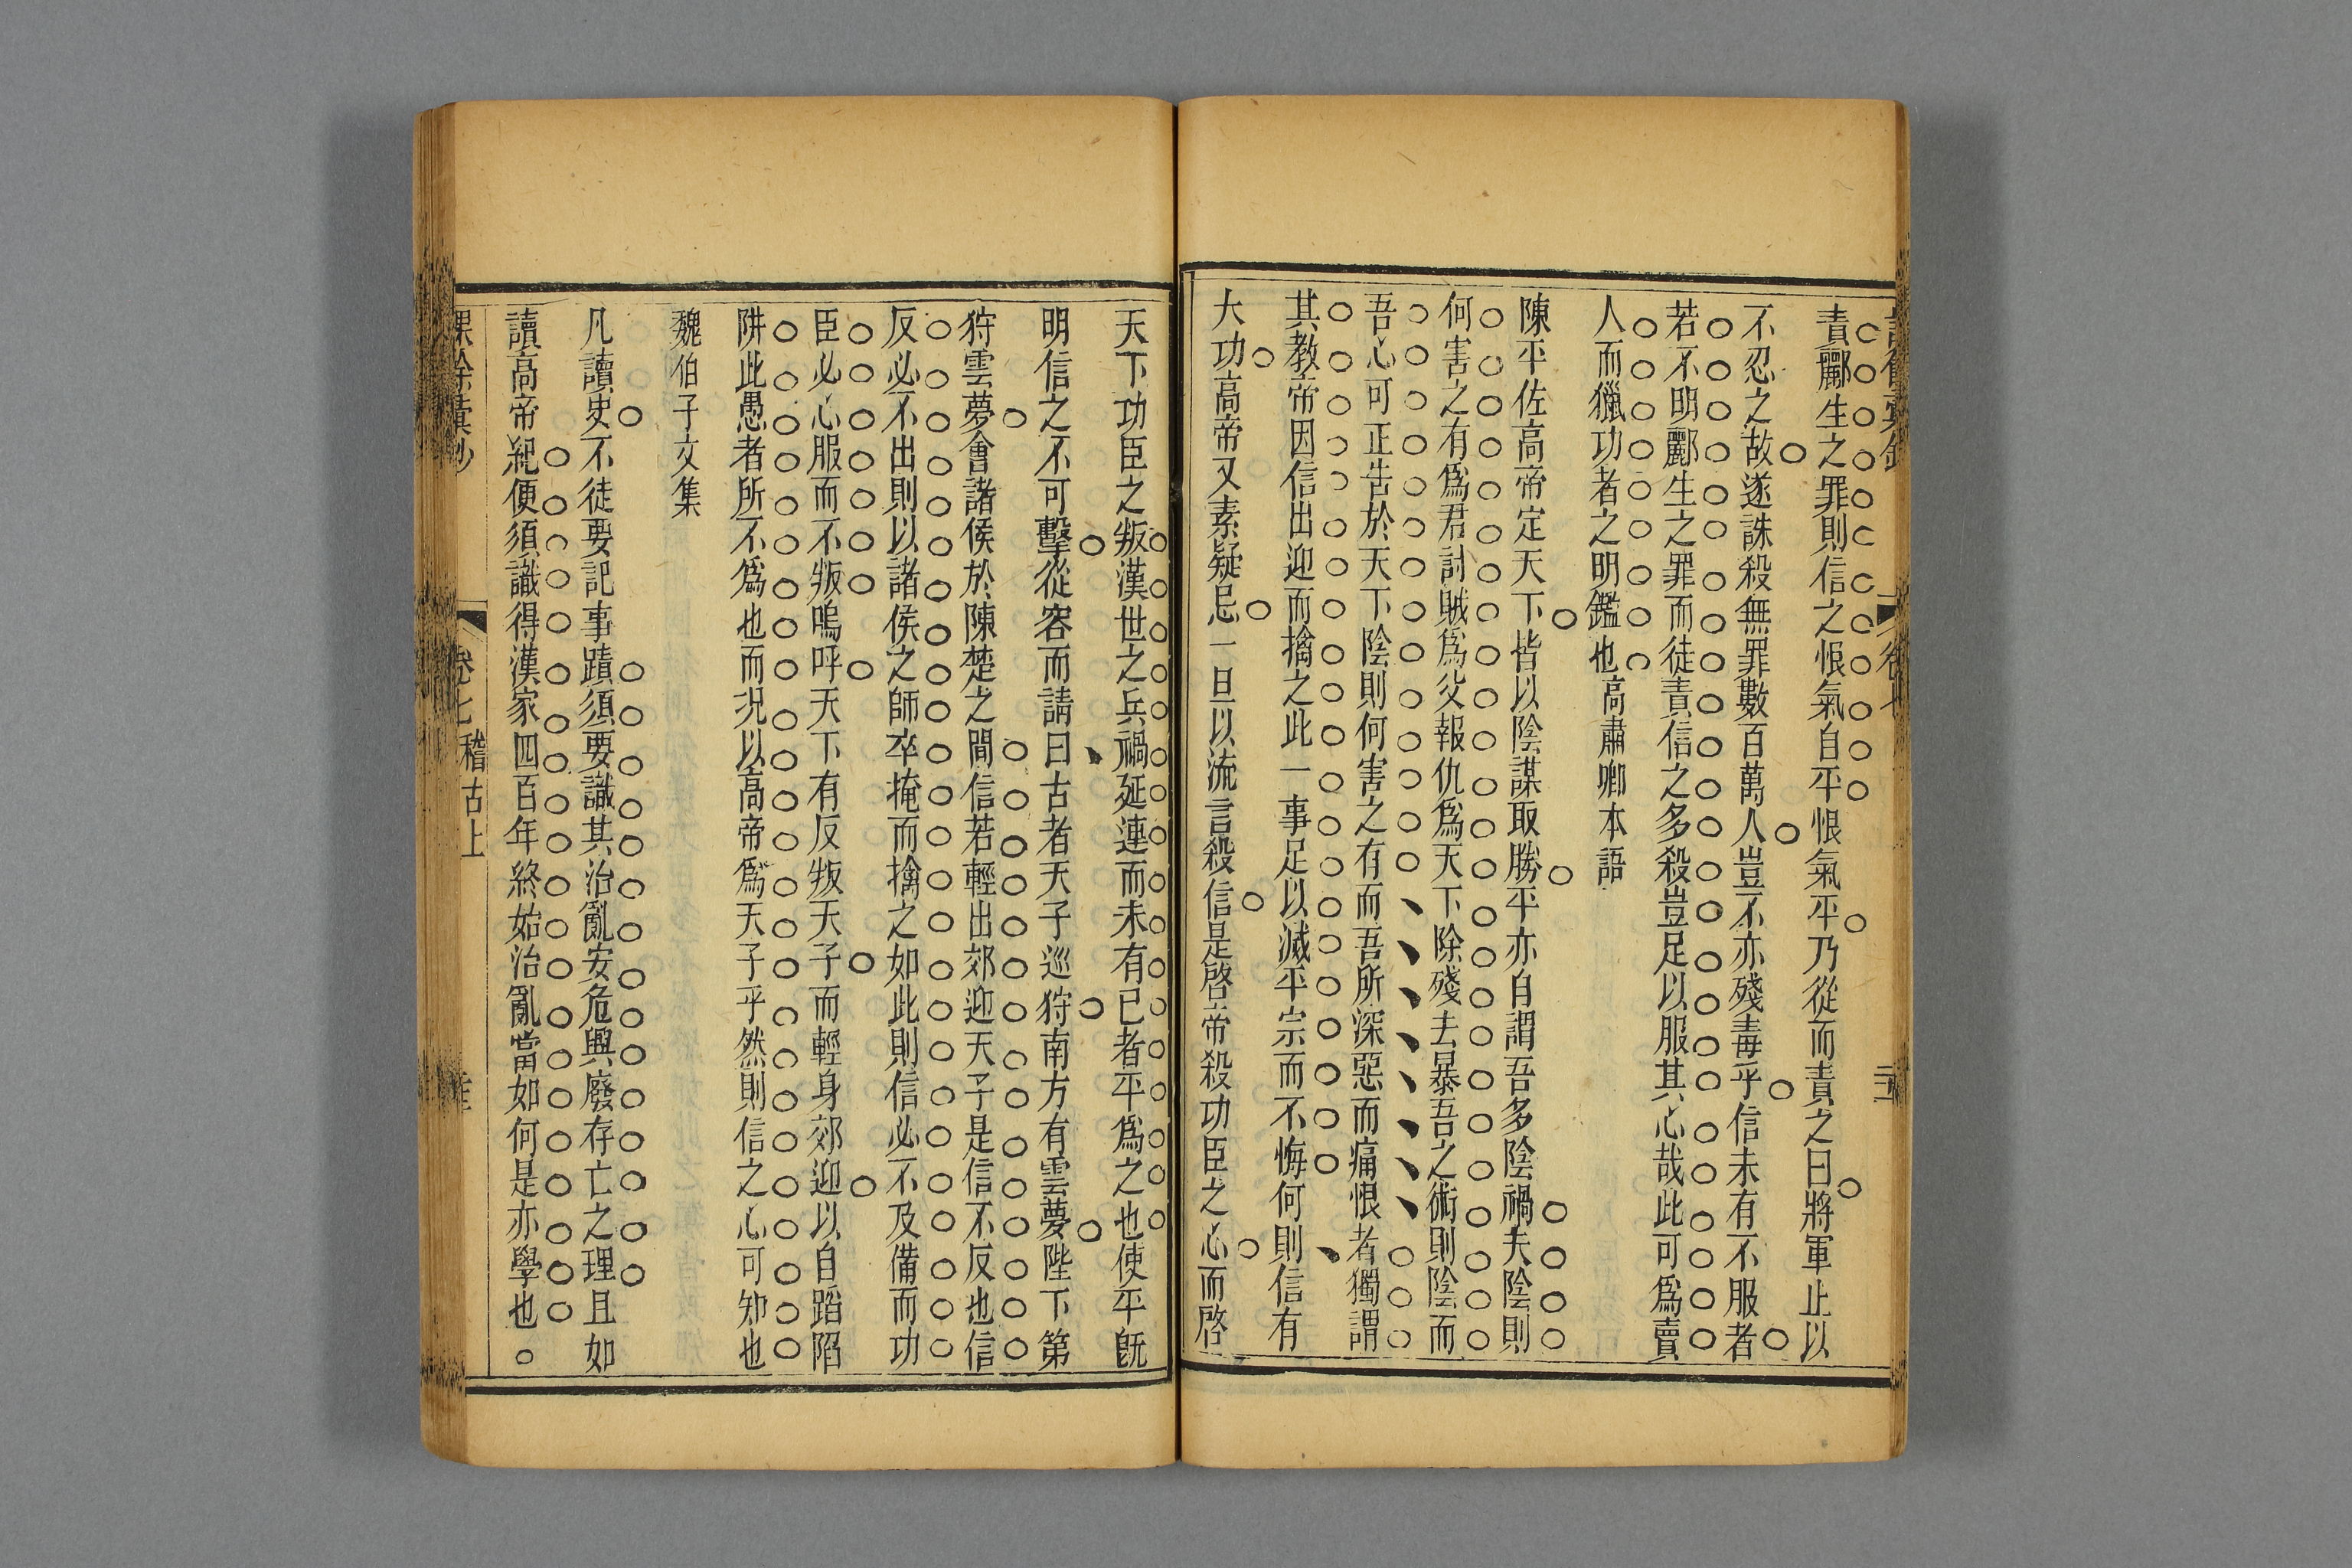 責酈生之罪則信之恨氣自平恨氣平乃從而責之曰將軍止以
不忍之故遂誅殺無罪數百萬人豈不亦殘毒乎信未有不服者
若不明酈生之罪而徒責信之多殺豈足以服其心哉此可爲賣
人而獵功者之明鑑也高肅卿本語
陳平佐高帝定天下皆以陰謀取勝平亦自謂吾多陰禍夫陰則
何害之有爲君討賊爲父報仇爲天下除殘去暴吾之術則陰而
吾心可正告於天下陰則何害之有而吾所深惡而痛恨者獨謂
其教帝因信出迎而擒之此一事足以滅平宗而不悔何則信有
大功高帝又素疑忌一旦以流言殺信是啓帝殺功臣之心而啓
天下功臣之叛漢世之兵禍延連而未有已者平爲之也使平旣
明信之不可擊從容而請曰古者天子巡狩南方有雲夢陛下第
狩雲夢會諸侯於陳楚之間信若輕出郊迎天子是信不反也信
反必不出則以諸侯之師卒掩而擒之如此則信必不及備而功
臣必心服而不叛嗚呼天下有反叛天子而輕身郊迎以自蹈陷
阱此愚者所不爲也而況以高帝爲天子乎然則信之心可知也
魏伯子文集
凡讀史不徒要記事蹟須要識其治亂安危興廢存亡之理且如
讀高帝紀便須識得漢家四百年終始治亂當如何是亦學也。
卷七 稽古上